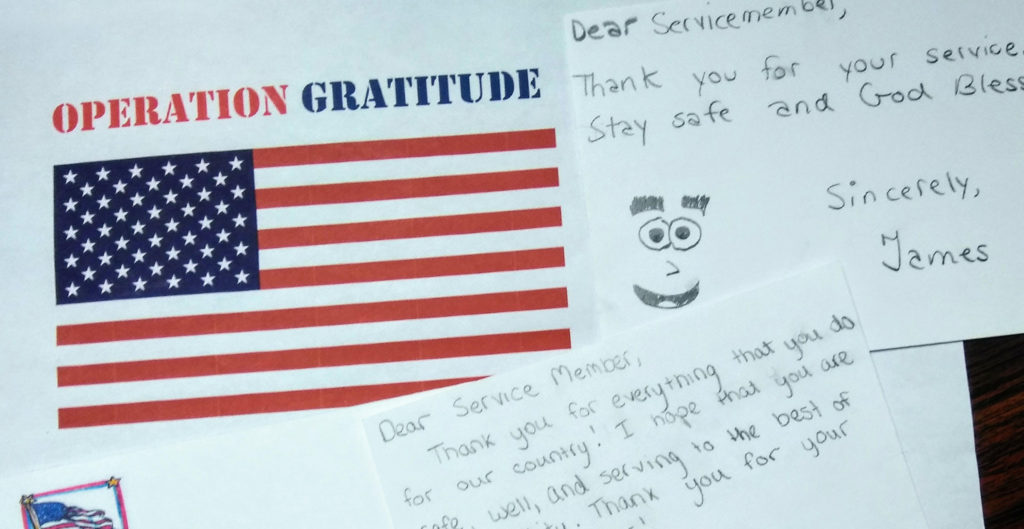 OPERATION GRATITUDE
Dear Servicemember,
Thank you for your service.
Stay safe and God Bless
Sincerely,
James
Dear Service Member,
Thank you for everything that you do
for our country! I hope that you are
safe, well, and serving to the best of
Thank you for your